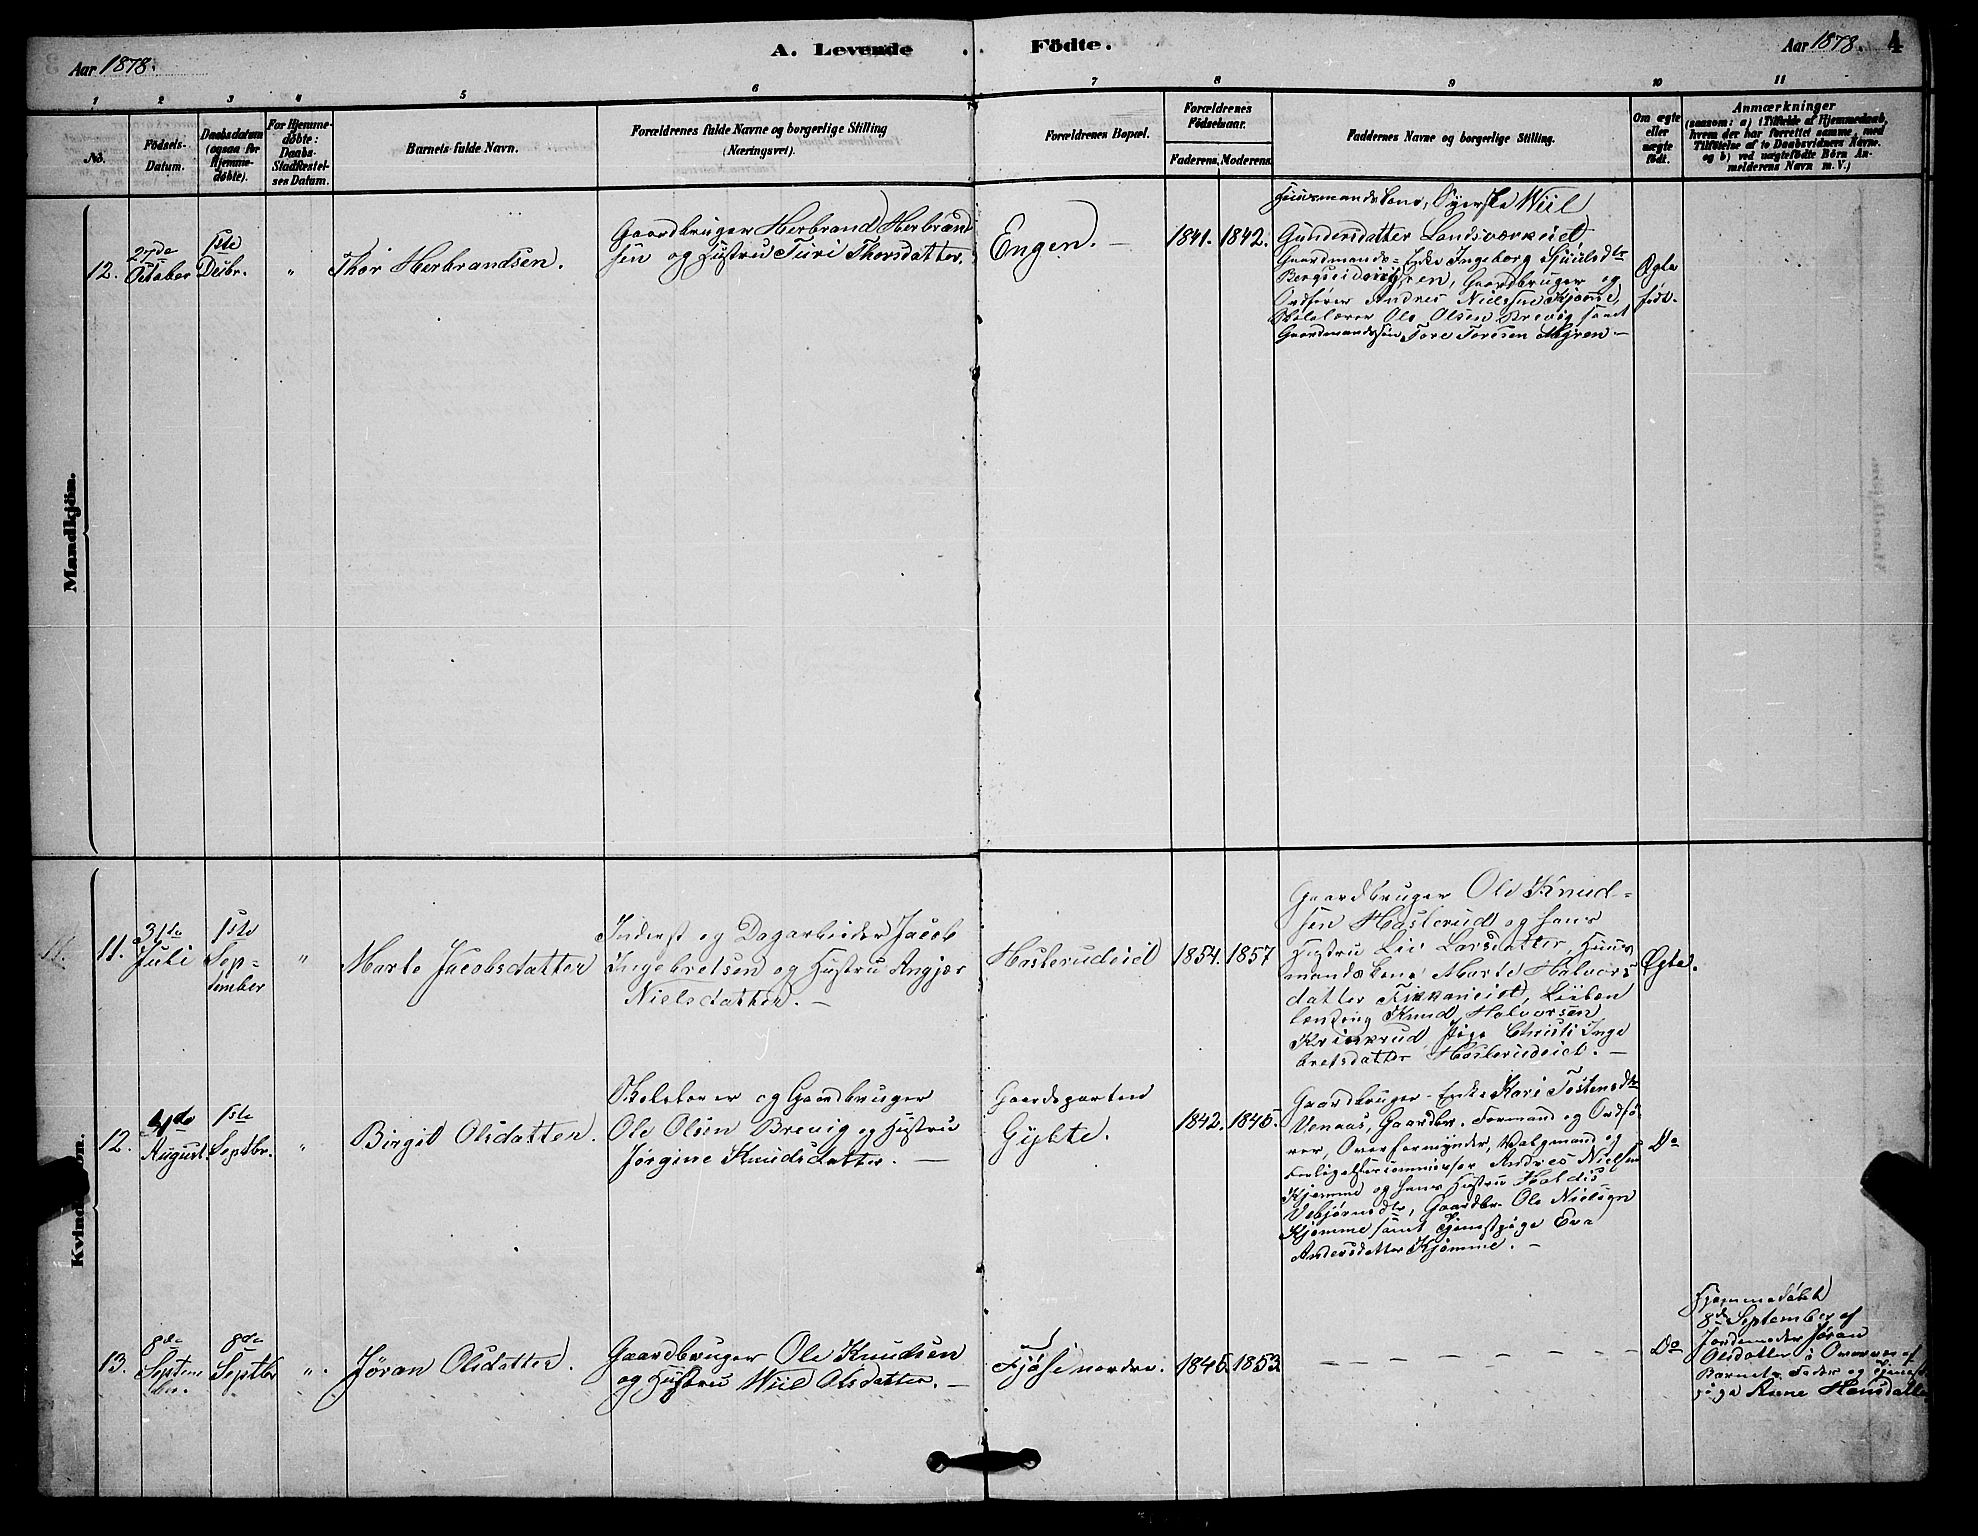 Aar 1878.
A. Levende Födte.
Aar 1878.
4
1 2 3 4 5 6 7 8 9 10 11
No.
Födsels-
Datum.
Daabsdatum
(ogsaa for
Hjemme-
døbte).
For Hjemme-
døbte:
Daabs-
Stadfæstel-
ses Datum.
Barnets fulde Navn.
Forældrenes fulde Navne og borgerlige Stilling
(Næringsvei).
Forældrenes Bopæl.
Forældrenes
Födselsaar.
Faderens.
Moderens.
Faddernes Navne og borgerlige Stilling.
Om ægte
eller
uægte
født.
Anmærkninger
(saasom: a) i Tilfælde af Hjemmedaab,
hvem der har forrettet samme, med
Tilföielse af to Daabsvidners Navne.
og b) ved uægtefödte Börn An-
melderens Navn m. V.)
Mandkjön.
12.
27de
October
1ste
Decbr.
"
Thor Herbrandsen.
Gaardbruger Herbrand Herbrand
sen og Hustru Turi Thorsdatter.
Engen. —
1841.
1842.
Huusmandskone, Wiil
Gundersdatter Landsværkeiet
Gaardmands-Enke Ingeborg
Gaardbruger og
Ordfører Andres Nielsen Kjømme,
Skolelærer Ole Olsen Brevig samt
Gaardmandssøn Tore Toresen Myren —
Ægte
født.
Kvindekjøn.
11.
11.
31te
Juli
1ste
Sep-
tember
"
Marte Jacobsdatter
Inderst og Dagarbeider Jacob
Ingebretsen og Hustru Angjær
Nielsdatter. —
Haslerudeiet
1854.
1857
Gaardbruger Ole Knud-
sen Haslerud og hans
Hustru Liv Larsdatter, Huus
mandskone Marte Halvors
datter
Knud Halvorsen
Pige Christi Inge
bretsdatter Haslerudeiet. —
Ægte.
12.
August
1ste
Septbr.
"
Birgit Olsdatter.
Skolelærer og Gaardbruger
Ole Olsen Brevig og Hustru
Jørgine Knudsdatter. —
Gaardsparten
1842.
1845.
Gaardbruger-Enke Kari
Venaas, Gaardbr. Formand og Ordfø
rer, Overformynder, Valgmand og
Forligelsescommissær Andres Nielsen
Kjømme og hans Hustru
Gaardbr. Ole Nielsen
Kjømme samt Tjenestpige Eva
Andersdatter Kjømme. —
Do
13.
8de
Septem
ber.
8de
Septbr
"
Jøran Olsdatter.
Gaardbruger Ole Knudsen
og Hustru Wiil Olsdatter. —
Fjøse nordre.
1846.
1853.
— — — — — — —
Do
Hjemmedøbt
8de September af
Jordemoder Jøran
Olsdatter i Overvær af
Barnets Fader og Tjenest
pige Anne Hansdatter